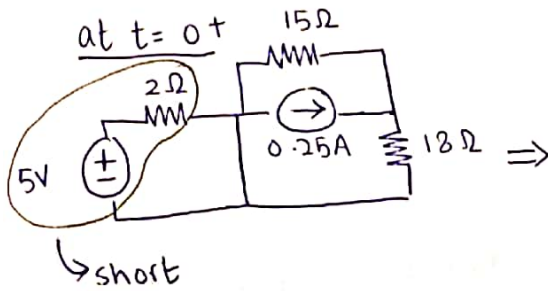 at t= 0+
15Ω
2Ω
0.25A
18Ω
⇒
5V
short